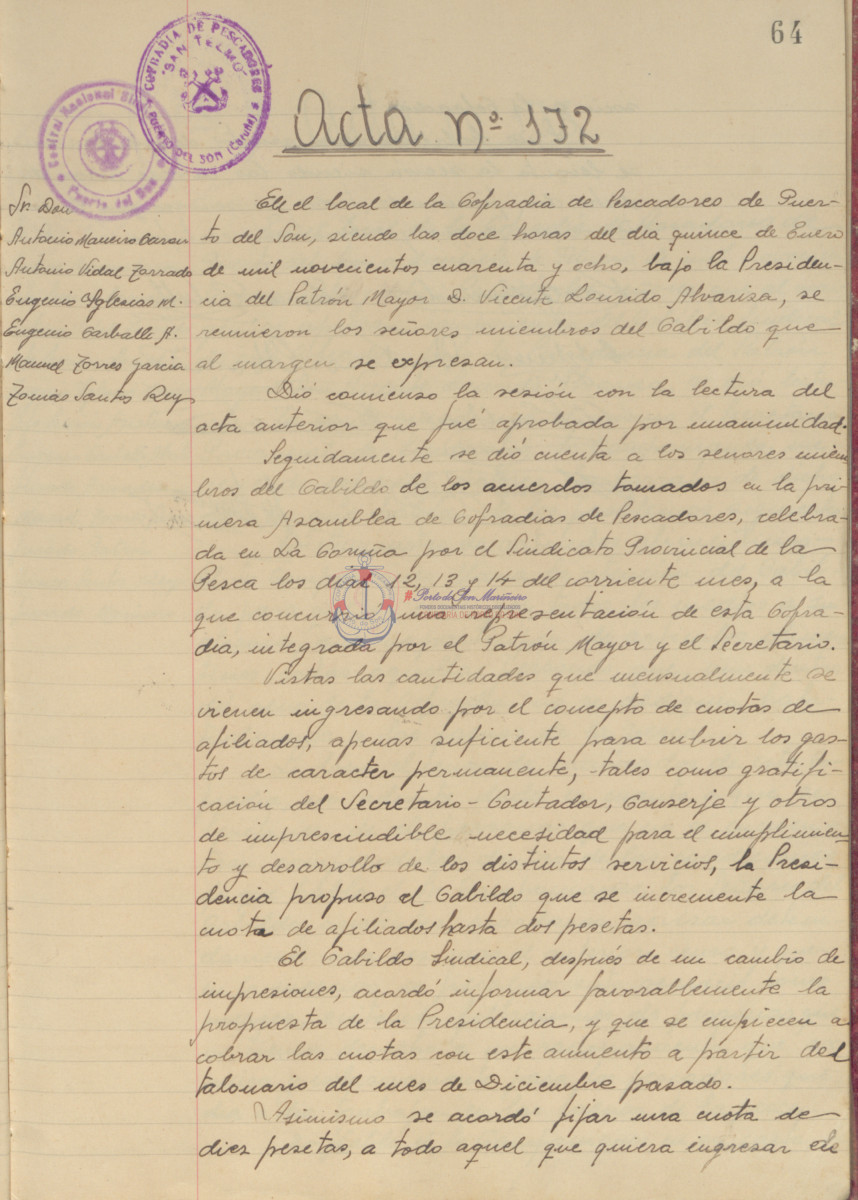 64
COFRADIA DE PESCADORES
"SAN TELMO"
PUERTO DEL SON (Coruña)
Central Nacional
Puerto del Son
Acta nº 172
Sr. Don
Antonio Maneiro
Antonio Vidal Torrado
Eugenio Yglesias M.
Eugenio Carballo A.
Manuel Torres Garcia
Tomás Santos Rey
En el local de la Cofradia de Pescadores de Puer-
to del Son, siendo las doce horas del dia quince de Enero
de mil novecientos cuarenta y ocho, bajo la Presiden-
cia del Patrón Mayor D. Vicente Lourido Alvariza, se
reunieron los señores miembros del Cabildo que
al margen se expresan.
Dió comienso la sesión con la lectura del
acta anterior que fué aprobada por unanimidad.
Seguidamente se dió cuenta a los senores miem-
bros del Cabildo de los acuerdos tomados en la pri-
mera Asamblea de Cofradias de Pescadores, celebra-
da en La Coruña por el Sindicato Provincial de la
Pesca los dias 12, 13 y 14 del corriente mes, a la
que concurrió una representación de esta Cofra-
dia, integrada por el Patrón Mayor y el Secretario.
Vistas las cantidades que mensualmente se
vienen ingresando por el concepto de cuotas de
afiliados, apenas suficiente para cubrir los gas-
tos de caracter permanente, tales como gratifi-
cación del Secretario-Contador, Conserje y otros
de imprescindible necesidad para el cumplimien-
to y desarrollo de los distintos servicios, la Presi-
dencia propuso al Cabildo que se incremente la
cuota de afiliados hasta dos pesetas.
El Cabildo Sindical, después de un cambio de
impresiones, acordó informar favorablemente la
propuesta de la Presidencia, y que se empiecen a
cobrar las cuotas con este aumento a partir del
talonario del mes de Diciembre pasado.
Asimismo se acordó fijar una cuota de
diez pesetas, a todo aquel que quiera ingresar de
Porto do Son Mariñeiro